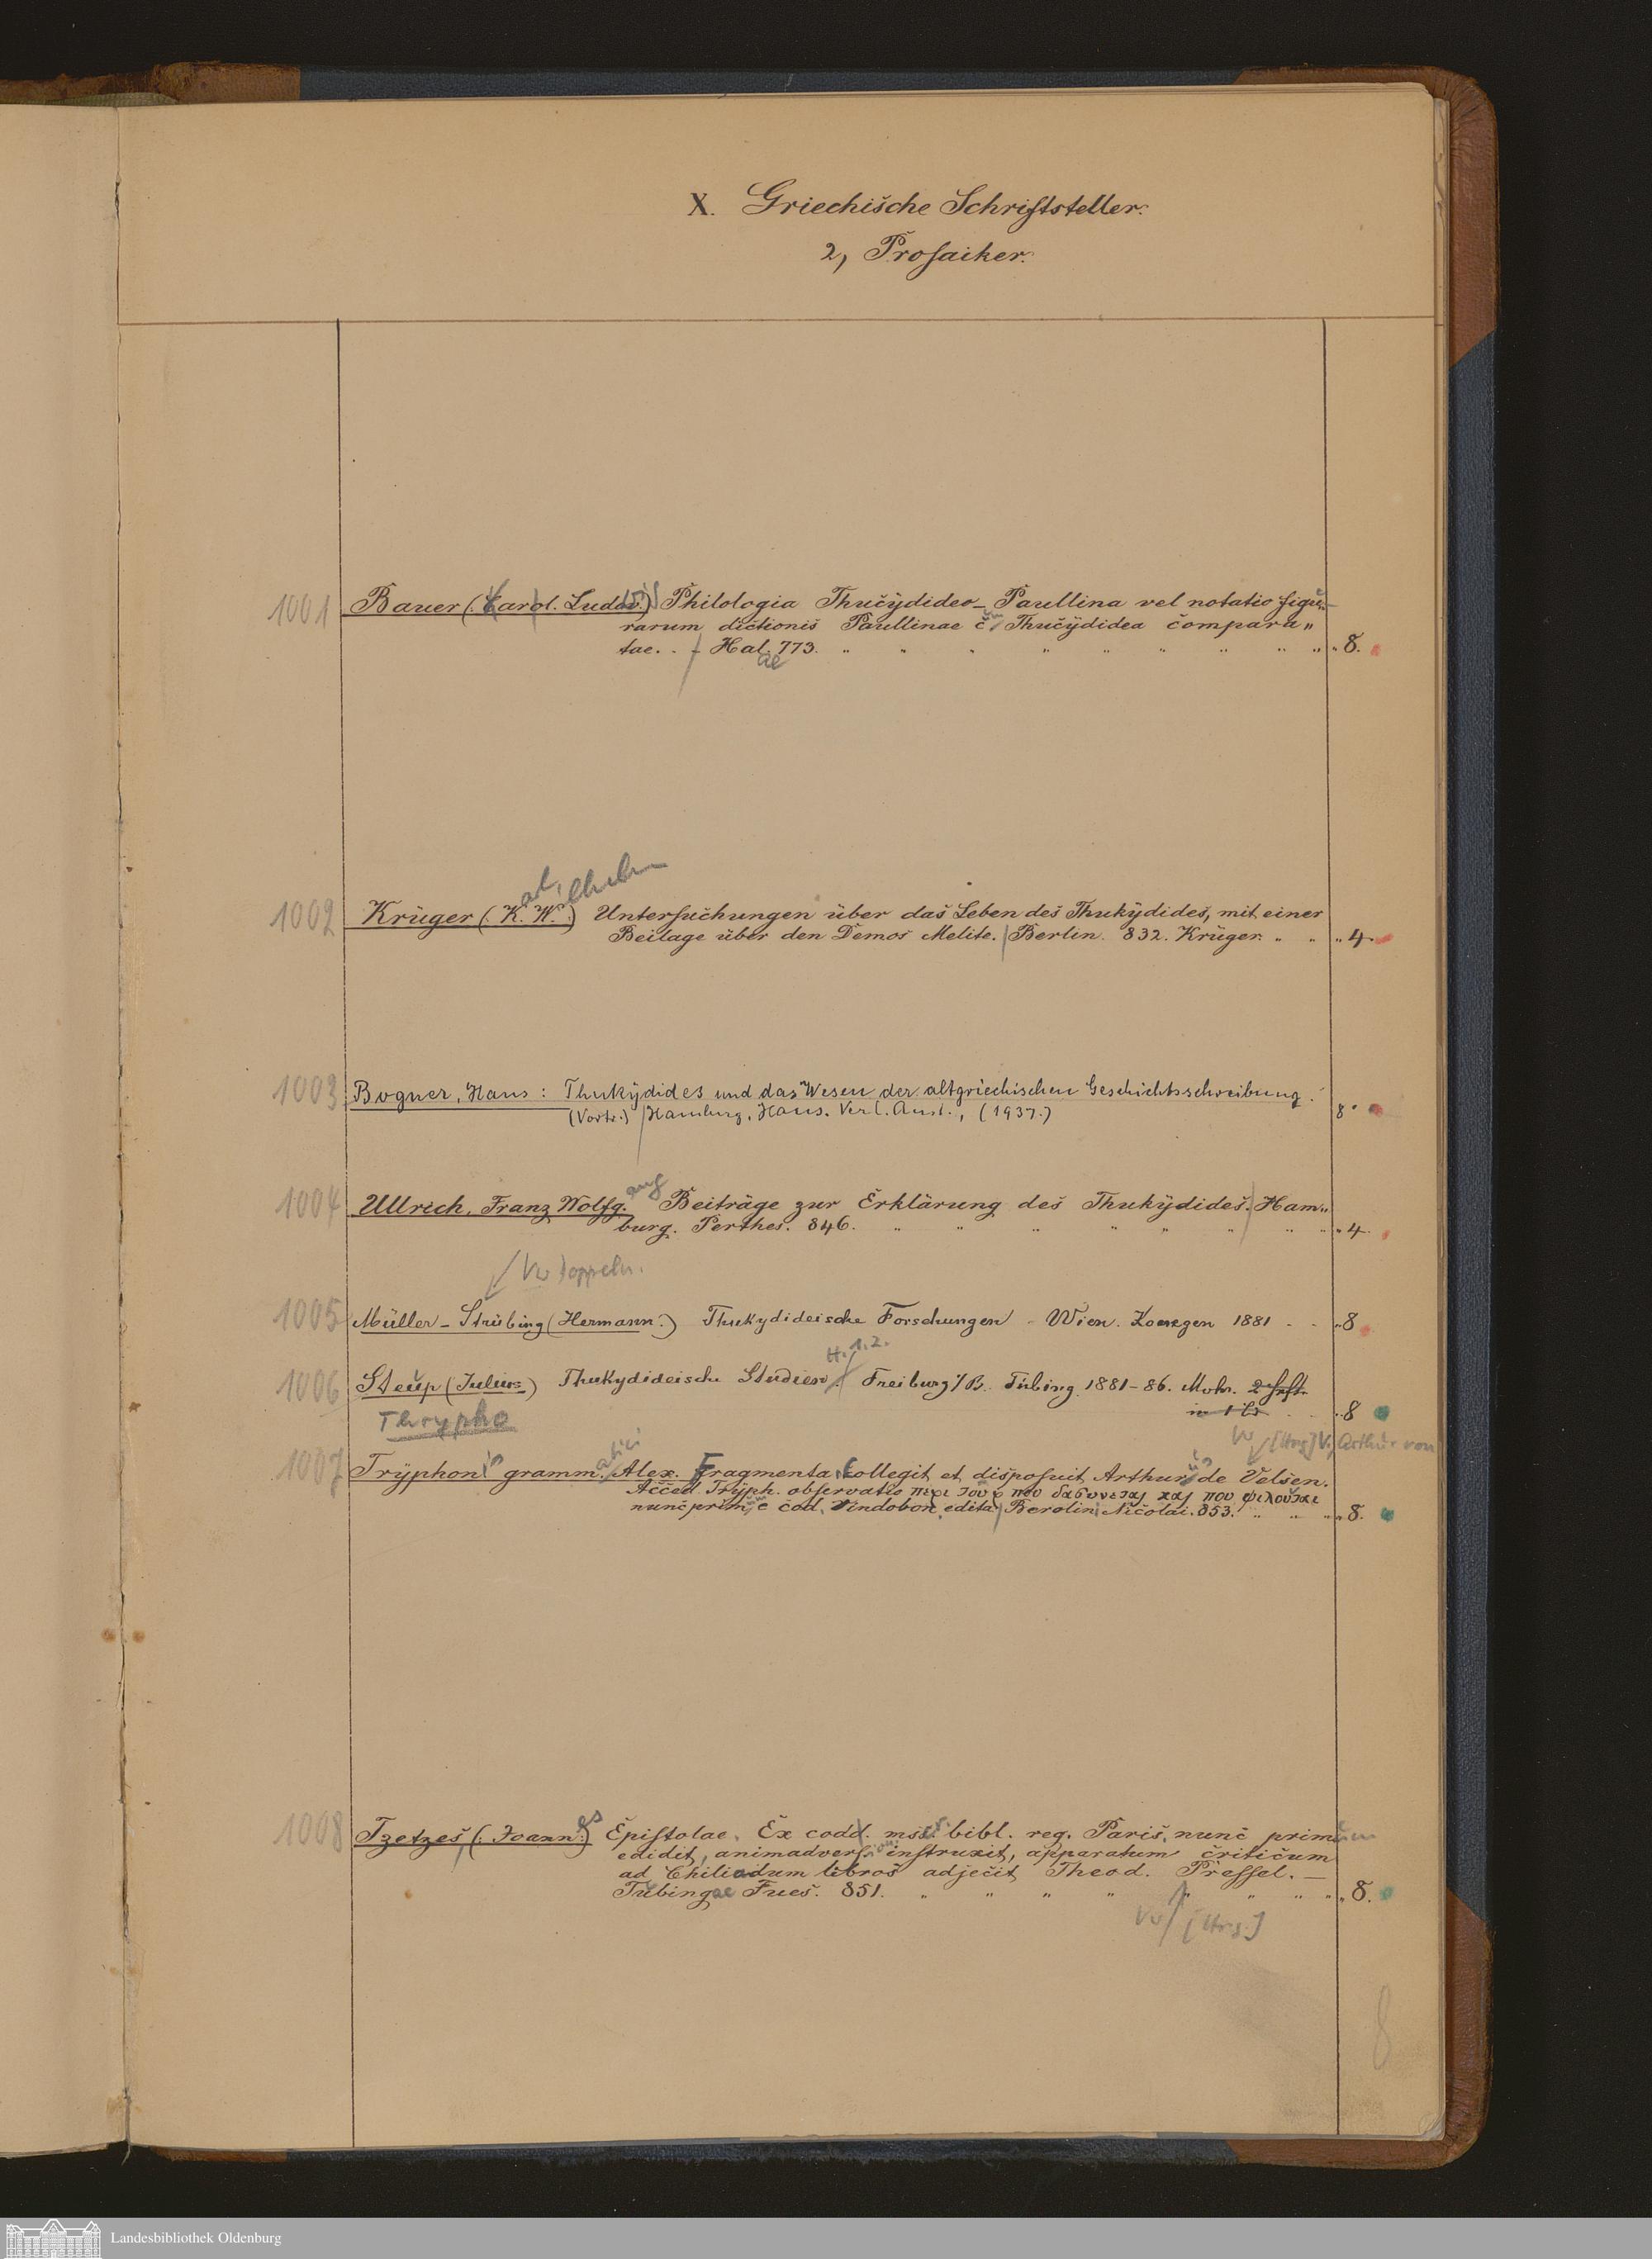 X. Griechische Schriftsteller.
2, Prosaiker.
1001 Bauer (Carol. Ludov.) Philologia Thucydideo-Paullina vel notatio figu-
rarum dictionis Paullinae c. Thucydidea compara„
tae. - Halae 773. 8.
1002 Krüger (K. W.) Untersuchungen über das Leben des Thukydides, mit einer
arl ilhelm
Beilage über den Demos Melite. Berlin. 832. Krüger. 4
1003 Bogner, Hans: Thukydides und das Wesen der altgriechischen Geschichtsschreibung.
(Vortr.) Hamburg, Hans. Verl. Anst., (1937.) 8°
1004 Ullrich, Franz Wolfg. Beiträge zur Erklärung des Thukydides. Ham„
ang
burg. Perthes. 846. 4.
Vw Doppeln.
1005 Müller-Strübing (Hermann.) Thukydideische Forschungen - Wien. Konegen 1881 8
1006 Steup (Julius) Thukydideische Studien. H. 1.2. Freiburg i/B. Tübing. 1881-86. Mohr. 2 Hft.
in 1 Bd 8
Thrypho
Vw [Hrsg] V., Arthur von
1007 Tryphonis gramm. Alex. Fragmenta collegit et disposuit Arthur de Velsen.
atici
Acced. Tryph. observatio
nunc prim. e cod. Vindobon. edita. Berolini Nicolai. 853. 8.
1008 Tzetzes, (Joann.) Epistolae. Ex codd. mss. bibl. reg. Paris. nunc primum
es
edidit, animadvers. instruxit, apparatum criticum
ad Chiliadum libros adjecit Theod. Pressel. —
Tubingae Fues. 851. 8.
Vw [Hrsg.]
8
Landesbibliothek Oldenburg